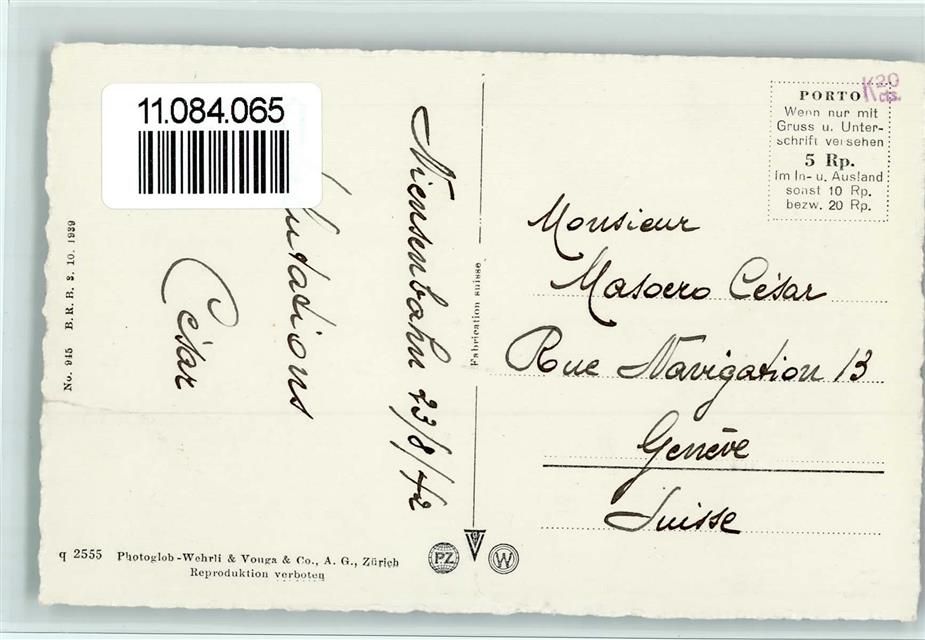 11.084.065
Niensenbahn 23/8/42
Salutations
César
No. 945 B.R.B. 3. 10. 1939
Fabrication suisse
K 20
cts.
PORTO
Wenn nur mit
Gruss u. Unter-
schrift versehen
5 Rp.
im In- u. Ausland
sonst 10 Rp.
bezw. 20 Rp.
Monsieur
Masoero César
Rue Navigation 13
Genève
Suisse
q 2555 Photoglob-Wehrli & Vouga & Co., A. G., Zürich
Reproduktion verboten
PZ
V
W